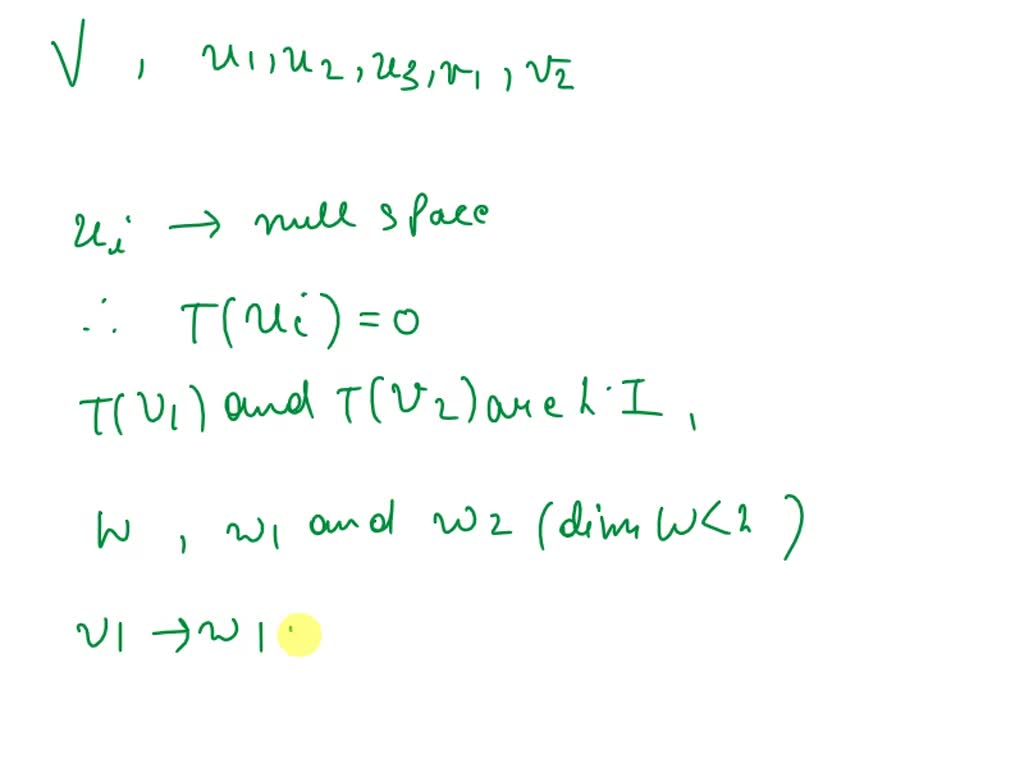 V , u1, u2, u3, v1, v2
ui → null space
∴ T(ui) = 0
T(v1) and T(v2) are L.I,
W , w1 and w2 (dim W < 2)
v1 → w1